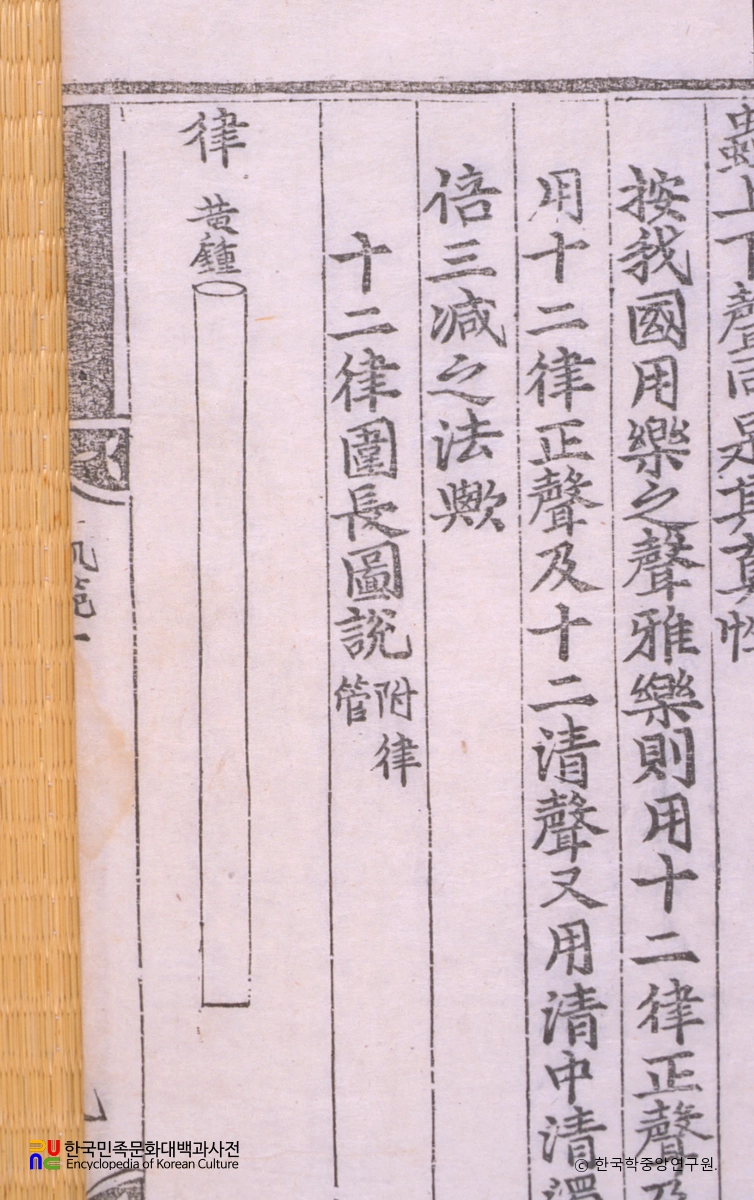 上下聲同是其
按我國用樂之聲雅樂則用十二律正聲及
用十二律正聲及十二淸聲又用淸中淸還
倍三减之法歟
十二律圍長圖說 附律管
律 黃鍾
한국민족문화대백과사전
Encyclopedia of Korean Culture
© 한국학중앙연구원.